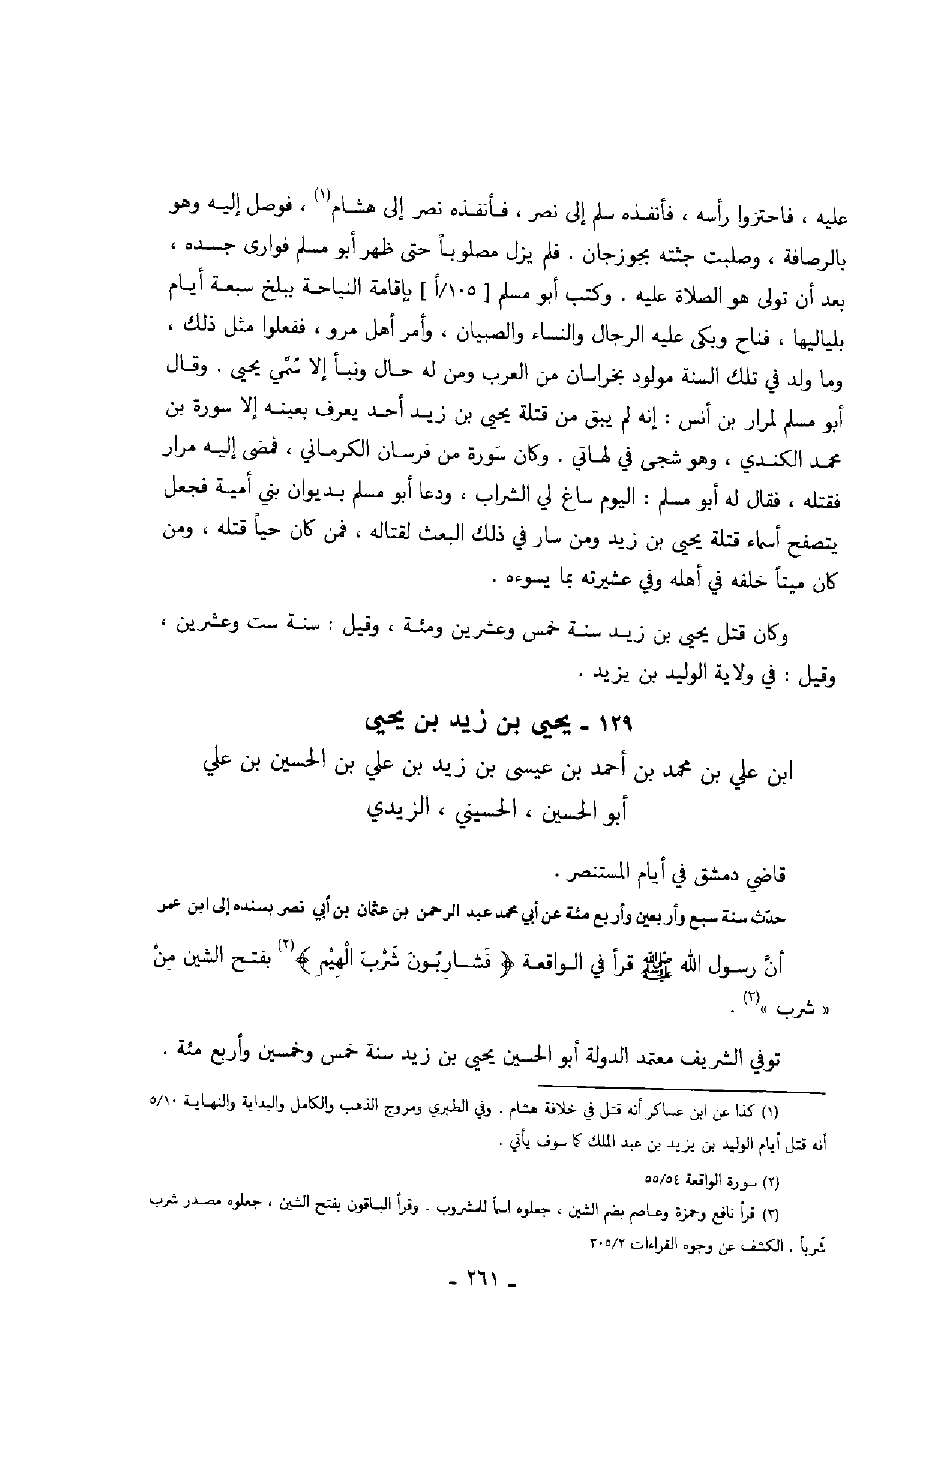 عليه ، فاحتزوا رأسه ، فأنفذه سلم إلى نصر ، فأنفذه نصر إلى هشام(١) ، فوصل إليه وهو
بالرصافة ، وصلبت جثته بجوزجان . فلم يزل مصلوباً حتى ظهر أبو مسلم فوارى جسده ،
بعد أن تولى هو الصلاة عليه . وكتب أبو مسلم [ ١٠٥/أ ] بإقامة النياحة ببلخ سبعة أيام
بلياليها ، فناح وبكى عليه الرجال والنساء والصبيان ، وأمر أهل مرو ، ففعلوا مثل ذلك ،
وما ولد في تلك السنة مولود بخراسان من العرب ومن له حال ونبأ إلا سُمِّي يحيى . وقال
أبو مسلم لمرار بن أنس : إنه لم يبق من قتلة يحيى بن زيد أحد يعرف بعينه إلا سورة بن
محمد الكندي ، وهو شجى في لهاتي . وكان سَورة من فرسان الكرماني ، فمضى إليه مرار
فقتله ، فقال له أبو مسلم : اليوم ساغ لي الشراب ، ودعا أبو مسلم بديوان بني أمية فجعل
يتصفح أسماء قتلة يحيى بن زيد ومن سار في ذلك البعث لقتاله ، فمن كان حياً قتله ، ومن
كان ميتاً خلفه في أهله وفي عشيرته بما يسوءه .
وكان قتل يحيى بن زيد سنة خمس وعشرين ومئة ، وقيل : سنة ست وعشرين ،
وقيل : في ولاية الوليد بن يزيد .
١٢٩ ـ يحيى بن زيد بن يحيى
ابن علي بن محمد بن أحمد بن عيسى بن زيد بن علي بن الحسين بن علي
أبو الحسين ، الحسيني ، الزيدي
قاضي دمشق في أيام المستنصر .
حدّث سنة سبع وأربعين وأربع مئة عن أبي محمد عبد الرحمن بن عثمان بن أبي نصر بسنده إلى ابن عمر
أنَّ رسول الله ﷺ قرأ في الواقعة ﴿ فَشَارِبُونَ شَرْبَ الْهِيْمِ ﴾(٢) بفتح الشين مِنْ
« شرب »(٣) .
توفي الشريف معتمد الدولة أبو الحسين يحيى بن زيد سنة خمس وخمسين وأربع مئة .
(١) كذا عن ابن عساكر أنه قتل في خلافة هشام . وفي الطبري ومروج الذهب والكامل والبداية والنهاية ٥/١٠
أنه قتل أيام الوليد بن يزيد بن عبد الملك كما سوف يأتي .
(٢) سورة الواقعة ٥٥/٥٤
(٣) قرأ نافع وحمزة وعاصم بضم الشين ، جعلوه اسماً للمشروب . وقرأ الباقون بفتح الشين ، جعلوه مصدر شرب
شَرباً . الكشف عن وجوه القراءات ٣٠٥/٢
ـ ٢٦١ ـ